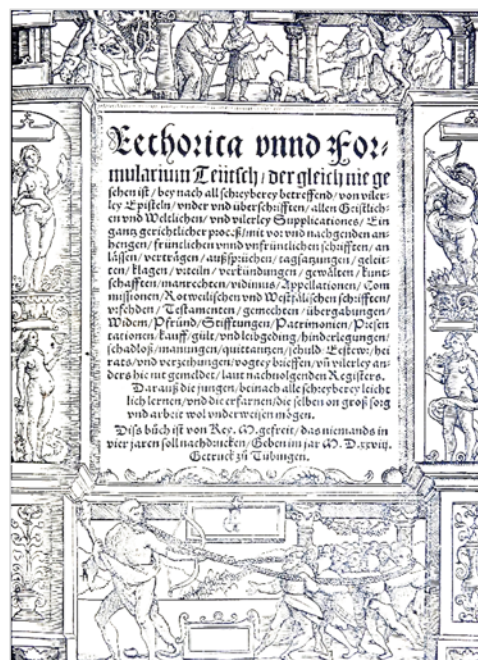 Rethorica vnnd For⸗
mularium Teütsch / der gleich nie ge
sehen ist / bey nach all schreyberey betreffend / von viler⸗
ley Episteln / vnder vnd überschrifften / allen Geistlich⸗
en vnd Weltlichen / vnd vilerley Supplicationes / Ein
gantz gerichtlicher proceß / mit vor vnd nachgenden an
hengen / früntlichen vnnd vnfrüntlichen schrifften / an
lässen / verträgen / außsprüchen / tagsatzungen / geleit
ten / klagen / vrteiln / verkündungen / gewälten / kunt⸗
schafften / manrechten / vidimus / Appellationen / Com
missionen / Rotweilischen vnd Westfälischen schrifften /
vrfehden / Testamenten / gemechten / übergabungen /
Widem / Pfründ / Stifftungen / Patrimonien / Presen
tationen / kauff / gült / vnd leibgeding / hinderlegungen /
schadloß / manungen / quittantzen / schuld / hei
rats / vnd verzeihungen / vogtey brieffen / vñ vilerley an
ders hie nit gemeldet / laut nachuolgenden Registers.
Darauß die jungen / beinach alle schreyberey leicht
lich lernen / vnd die erfarnen / die selben on groß sorg
vnd arbeit wol vnderweisen mögen.
Diß bůch ist von Key. M. gefreit / das niemands in
vier jaren soll nachdrucken / Geben im jar M. D. xxviij.
Getruckt zů Tübingen.